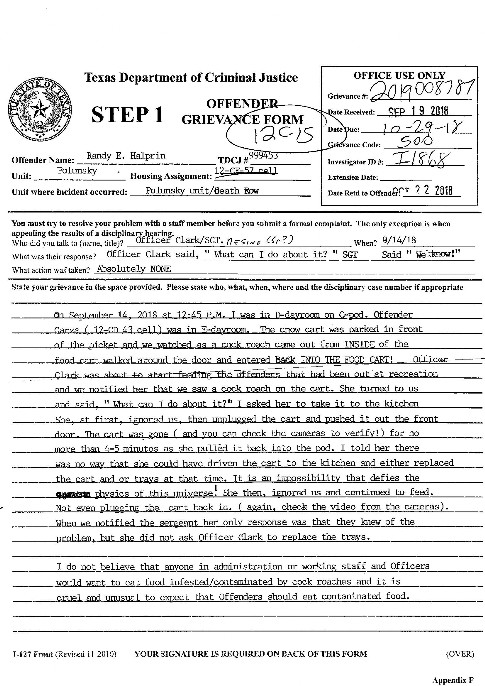 Texas Department of Criminal Justice
STEP 1 OFFENDER
GRIEVANCE FORM
12C-15
OFFICE USE ONLY
Grievance #: 2019008787
Date Received: SEP 19 2018
Date Due: 10-29-18
Grievance Code: 500
Investigator ID #: I1868
Extension Date:
Date Retd to Offender: OCT 22 2018
Offender Name: Randy E. Halprin TDCJ # 999453
Unit: Polunsky Housing Assignment: 12-CE-52 cell
Unit where incident occurred: Polunsky unit/Death Row
You must try to resolve your problem with a staff member before you submit a formal complaint. The only exception is when
appealing the results of a disciplinary hearing.
Who did you talk to (name, title)? Officer Clark/SGT. When? 9/14/18
What was their response? Officer Clark said, " What can I do about it? " SGT Said " We know!"
What action was taken? Absolutely NONE
State your grievance in the space provided. Please state who, what, when, where and the disciplinary case number if appropriate
On September 14, 2018 at 12:45 P.M. I was in D-dayroom on C-pod. Offender
(12-CD 43 cell) was in E-dayroom. The chow cart was parked in front
of the picket and we watched as a cock roach came out from INSIDE of the
food cart walked around the door and entered back INTO THE FOOD CART! Officer
Clark was about to start feeding the offenders that had been out at recreation
and we notified her that we saw a cock roach on the cart. She turned to us
and said, " What can I do about it?" I asked her to take it to the kitchen
She, at first, ignored us, then unplugged the cart and pushed it out the front
door. The cart was gone ( and you can check the cameras to verify!) for no
more than 4-5 minutes as she pulled it back into the pod. I told her there
was no way that she could have driven the cart to the kitchen and either replaced
the cart and or trays at that time. It is an impossibility that defies the
physics of this universe! She then, ignored us and continued to feed.
Not even plugging the cart back in. ( again, check the video from the cameras).
When we notified the sergeant her only response was that they knew of the
problem, but she did not ask Officer Clark to replace the trays.
I do not believe that anyone in administration or working staff and Officers
would want to eat food infested/contaminated by cock roaches and it is
cruel and unusual to expect that Offenders should eat contaminated food.
I-127 Front (Revised 11-2010) YOUR SIGNATURE IS REQUIRED ON BACK OF THIS FORM (OVER)
Appendix F